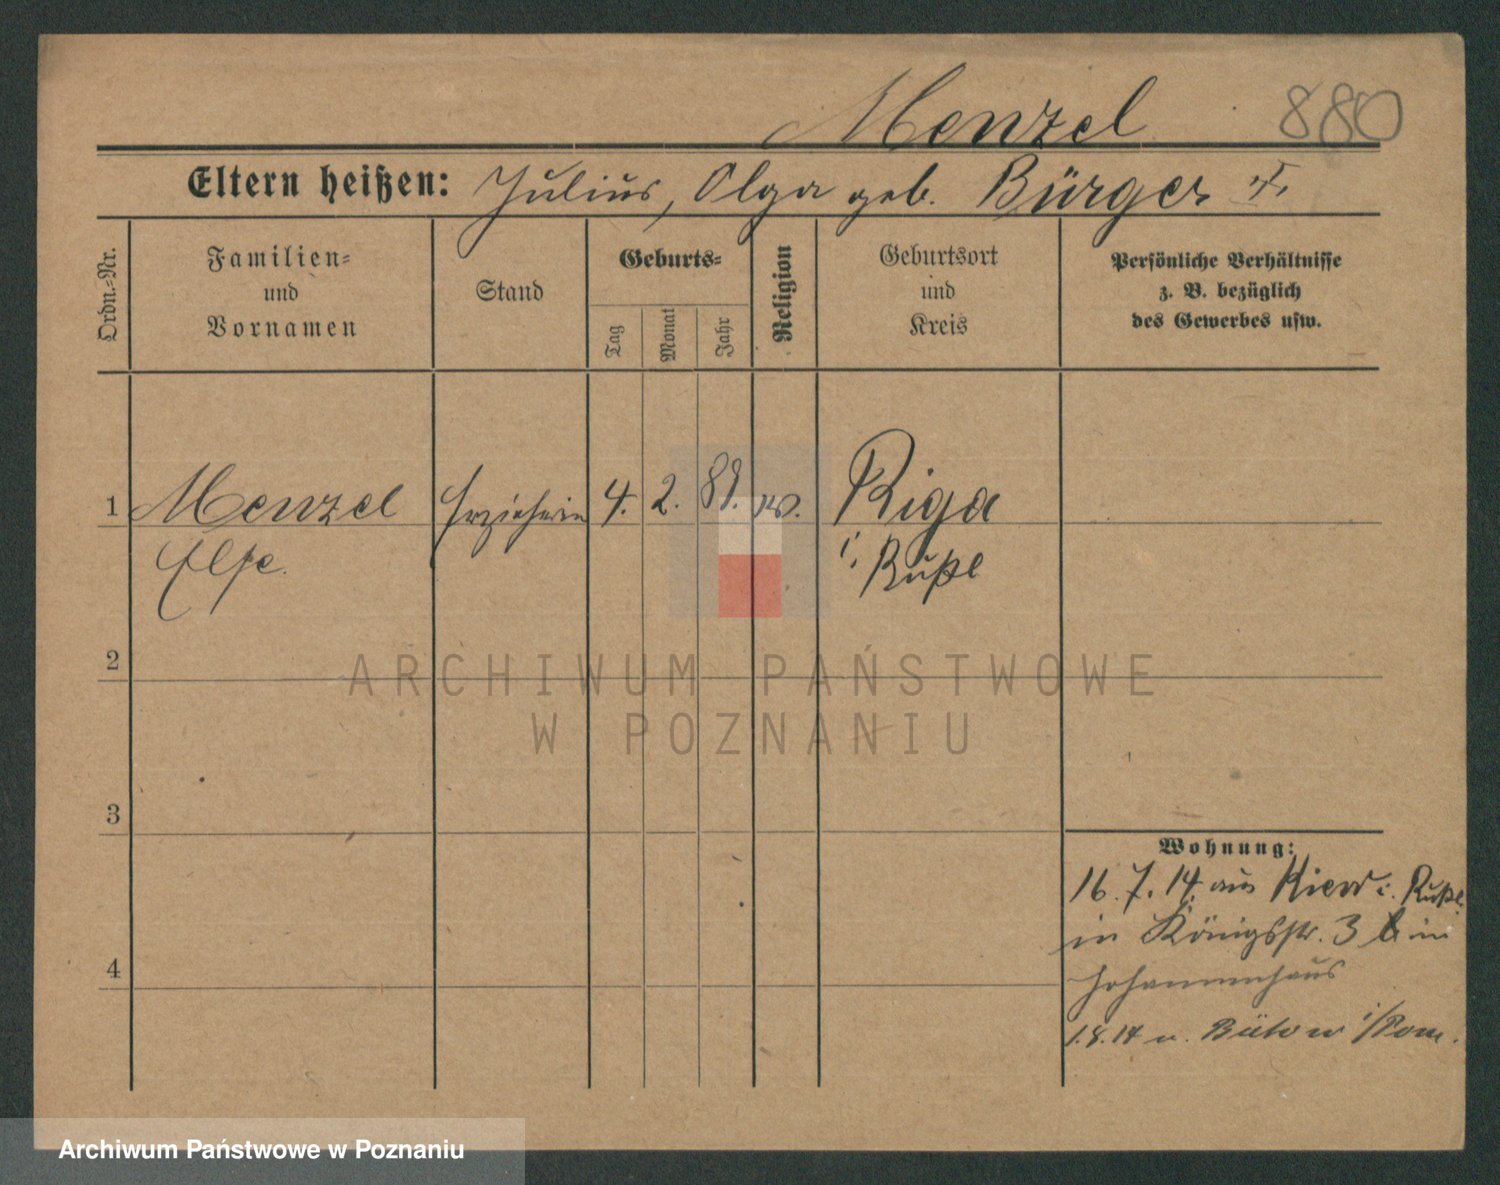 Menzel 880
Eltern heißen: Julius, Olga geb. Bürger †.
Ordn.-Nr.
Familien-
und
Vornamen
Stand
Geburts-
Tag
Monat
Jahr
Religion
Geburtsort
und
Kreis
Persönliche Verhältnisse
z. B. bezüglich
des Gewerbes usw.
1 Menzel Erzieherin 4. 2. 89. Riga
Else. i. Rußl
2
ARCHIWUM PAŃSTWOWE
W POZNANIU
3
Wohnung:
16.7.14. aus Kiew i. Rußl.
in Königsstr. 3 b im
4
1.8.14 n. Bütow i/Pom.
Archiwum Państwowe w Poznaniu